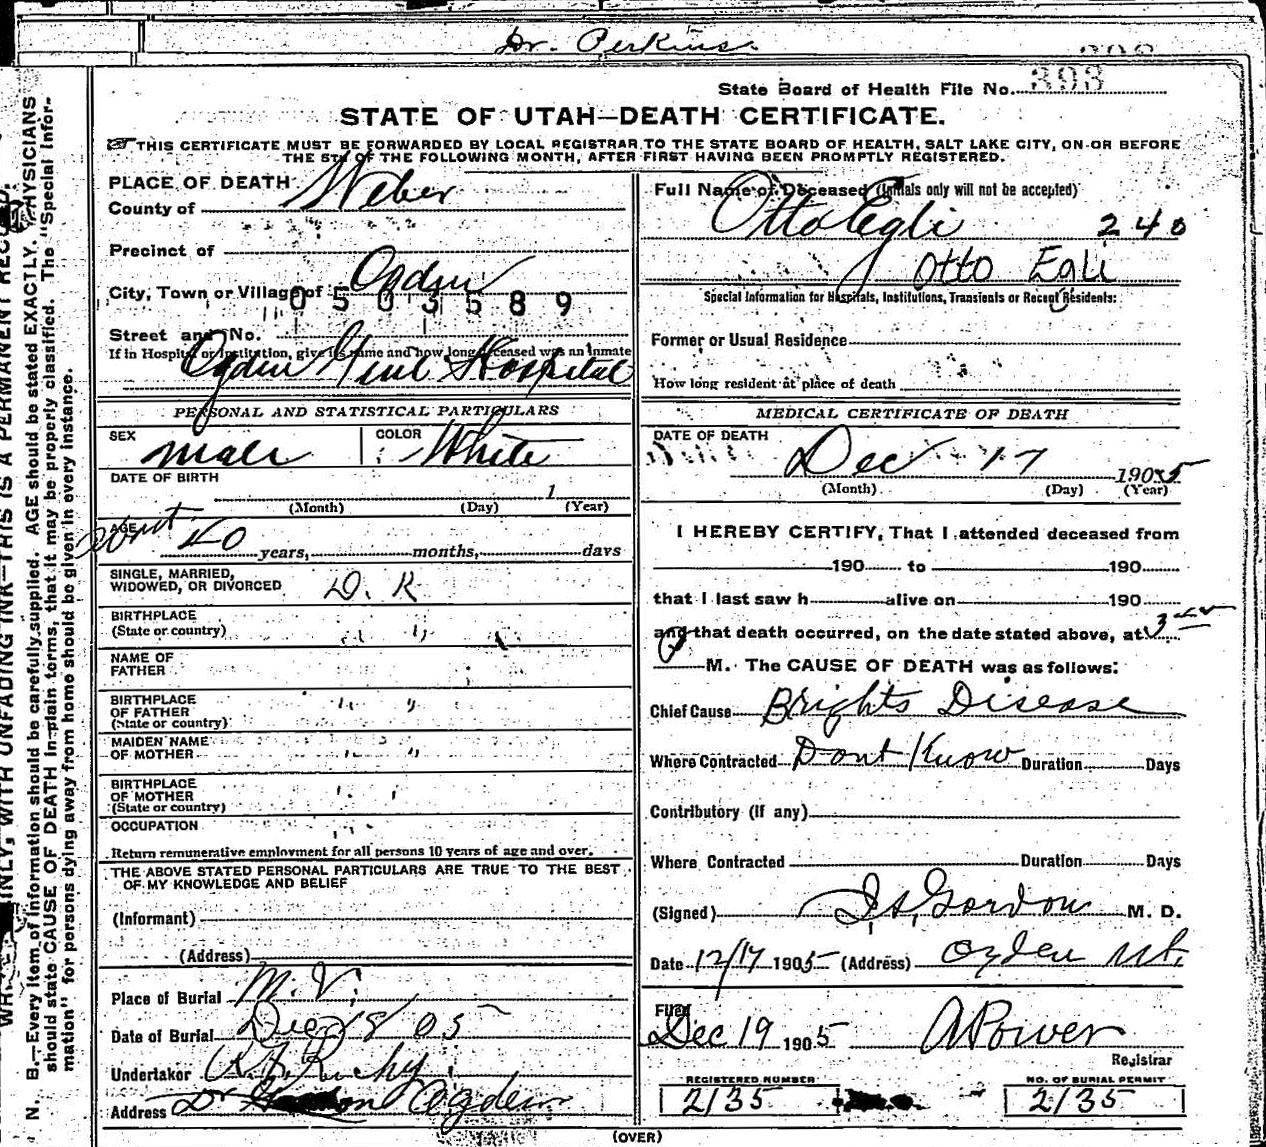 Dr. Perkins.
State Board of Health File No. 393
STATE OF UTAH—DEATH CERTIFICATE.
THIS CERTIFICATE MUST BE FORWARDED BY LOCAL REGISTRAR TO THE STATE BOARD OF HEALTH, SALT LAKE CITY, ON OR BEFORE
THE 5TH OF THE FOLLOWING MONTH, AFTER FIRST HAVING BEEN PROMPTLY REGISTERED.
PLACE OF DEATH
County of Weber
Precinct of
City, Town or Village of Ogden
0503589
Street and No.
If in Hospital or Institution, give its name and how long deceased was an inmate
Ogden Genl Hospital
PERSONAL AND STATISTICAL PARTICULARS
SEX male COLOR White
DATE OF BIRTH
1
(Month) (Day) (Year)
AGE about 40 years, months, days
SINGLE, MARRIED,
WIDOWED, OR DIVORCED D. K
BIRTHPLACE
(State or country) " "
NAME OF
FATHER " "
BIRTHPLACE
OF FATHER
(State or country) " "
MAIDEN NAME
OF MOTHER " "
BIRTHPLACE
OF MOTHER
(State or country) " "
OCCUPATION " "
Return remunerative employment for all persons 10 years of age and over.
THE ABOVE STATED PERSONAL PARTICULARS ARE TRUE TO THE BEST
OF MY KNOWLEDGE AND BELIEF
(Informant)
(Address)
Place of Burial M. V.
Date of Burial Dec 18 05
Undertaker
Address Dr Ogden
Full Name of Deceased (Initials only will not be accepted)
Otto Egli 240
Otto Egli
Special Information for Hospitals, Institutions, Transients or Recent Residents:
Former or Usual Residence
How long resident at place of death
MEDICAL CERTIFICATE OF DEATH
DATE OF DEATH
Dec 17 1905
(Month) (Day) (Year)
I HEREBY CERTIFY, That I attended deceased from
190 to 190
that I last saw h alive on 190
and that death occurred, on the date stated above, at 3
P M. The CAUSE OF DEATH was as follows:
Chief Cause Brights Disease
Where Contracted Dont Know Duration Days
Contributory (If any)
Where Contracted Duration Days
(Signed) Gordon M. D.
Date 12/17 1905 (Address) Ogden Ut.
Filed
Dec 19 1905 A Power
Registrar
REGISTERED NUMBER
2135
NO. OF BURIAL PERMIT
2135
(OVER)
N. B.—Every item of information should be carefully supplied. AGE should be stated EXACTLY. PHYSICIANS
should state CAUSE OF DEATH in plain terms, that it may be properly classified. The "Special Infor-
mation" for persons dying away from home should be given in every instance.
WITH UNFADING INK—THIS IS A PERMANENT